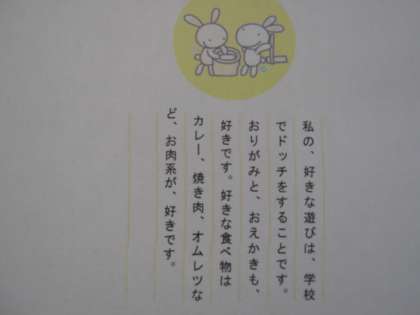 私の、好きな遊びは、学校
でドッチをすることです。
おりがみと、おえかきも、
好きです。好きな食べ物は
カレー、焼き肉、オムレツな
ど、お肉系が、好きです。